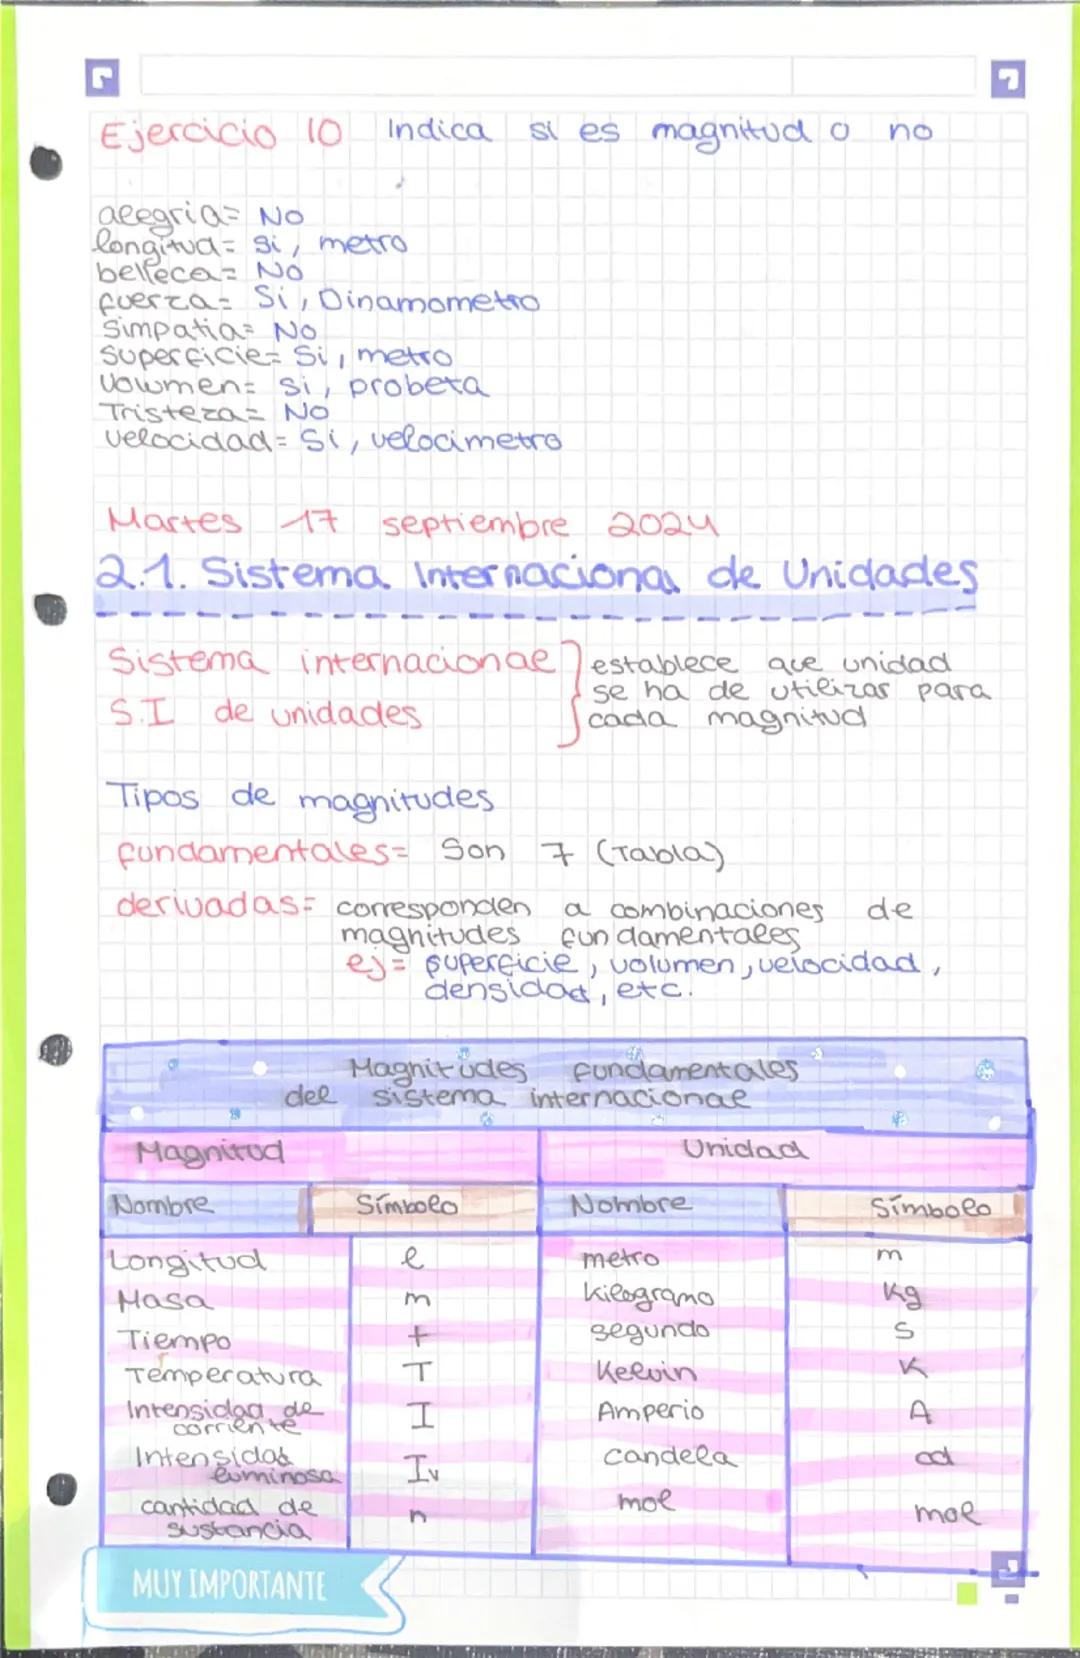 Ejercicio 10 Indica si es magnitud o no
alegria= No
longitud= si, metro
belleca= No
fuerza= Si, Dinamometro
Simpatia= No
Superficie= Si, metro
Volumen= si, probeta
Tristeza= No
velocidad= Si, velocimetro
Martes 17 septiembre 2024
2.1. Sistema Internacional de Unidades
Sistema internacional
S.I de unidades
establece que unidad
se ha de utilizar para
cada magnitud
Tipos de magnitudes
fundamentales= Son 7 (Tabla)
derivadas= corresponden a combinaciones de
magnitudes fundamentales
ej= superficie, volumen, velocidad,
densidad, etc.
Magnitudes fundamentales
del sistema internacional
Magnitud Unidad
Nombre Símbolo Nombre Símbolo
Longitud l metro m
Masa m kilogramo Kg
Tiempo t segundo s
Temperatura T Kelvin K
Intensidad de
corriente I Amperio A
Intensidad
luminosa Iv candela cd
cantidad de
sustancia n mol mol
MUY IMPORTANTE